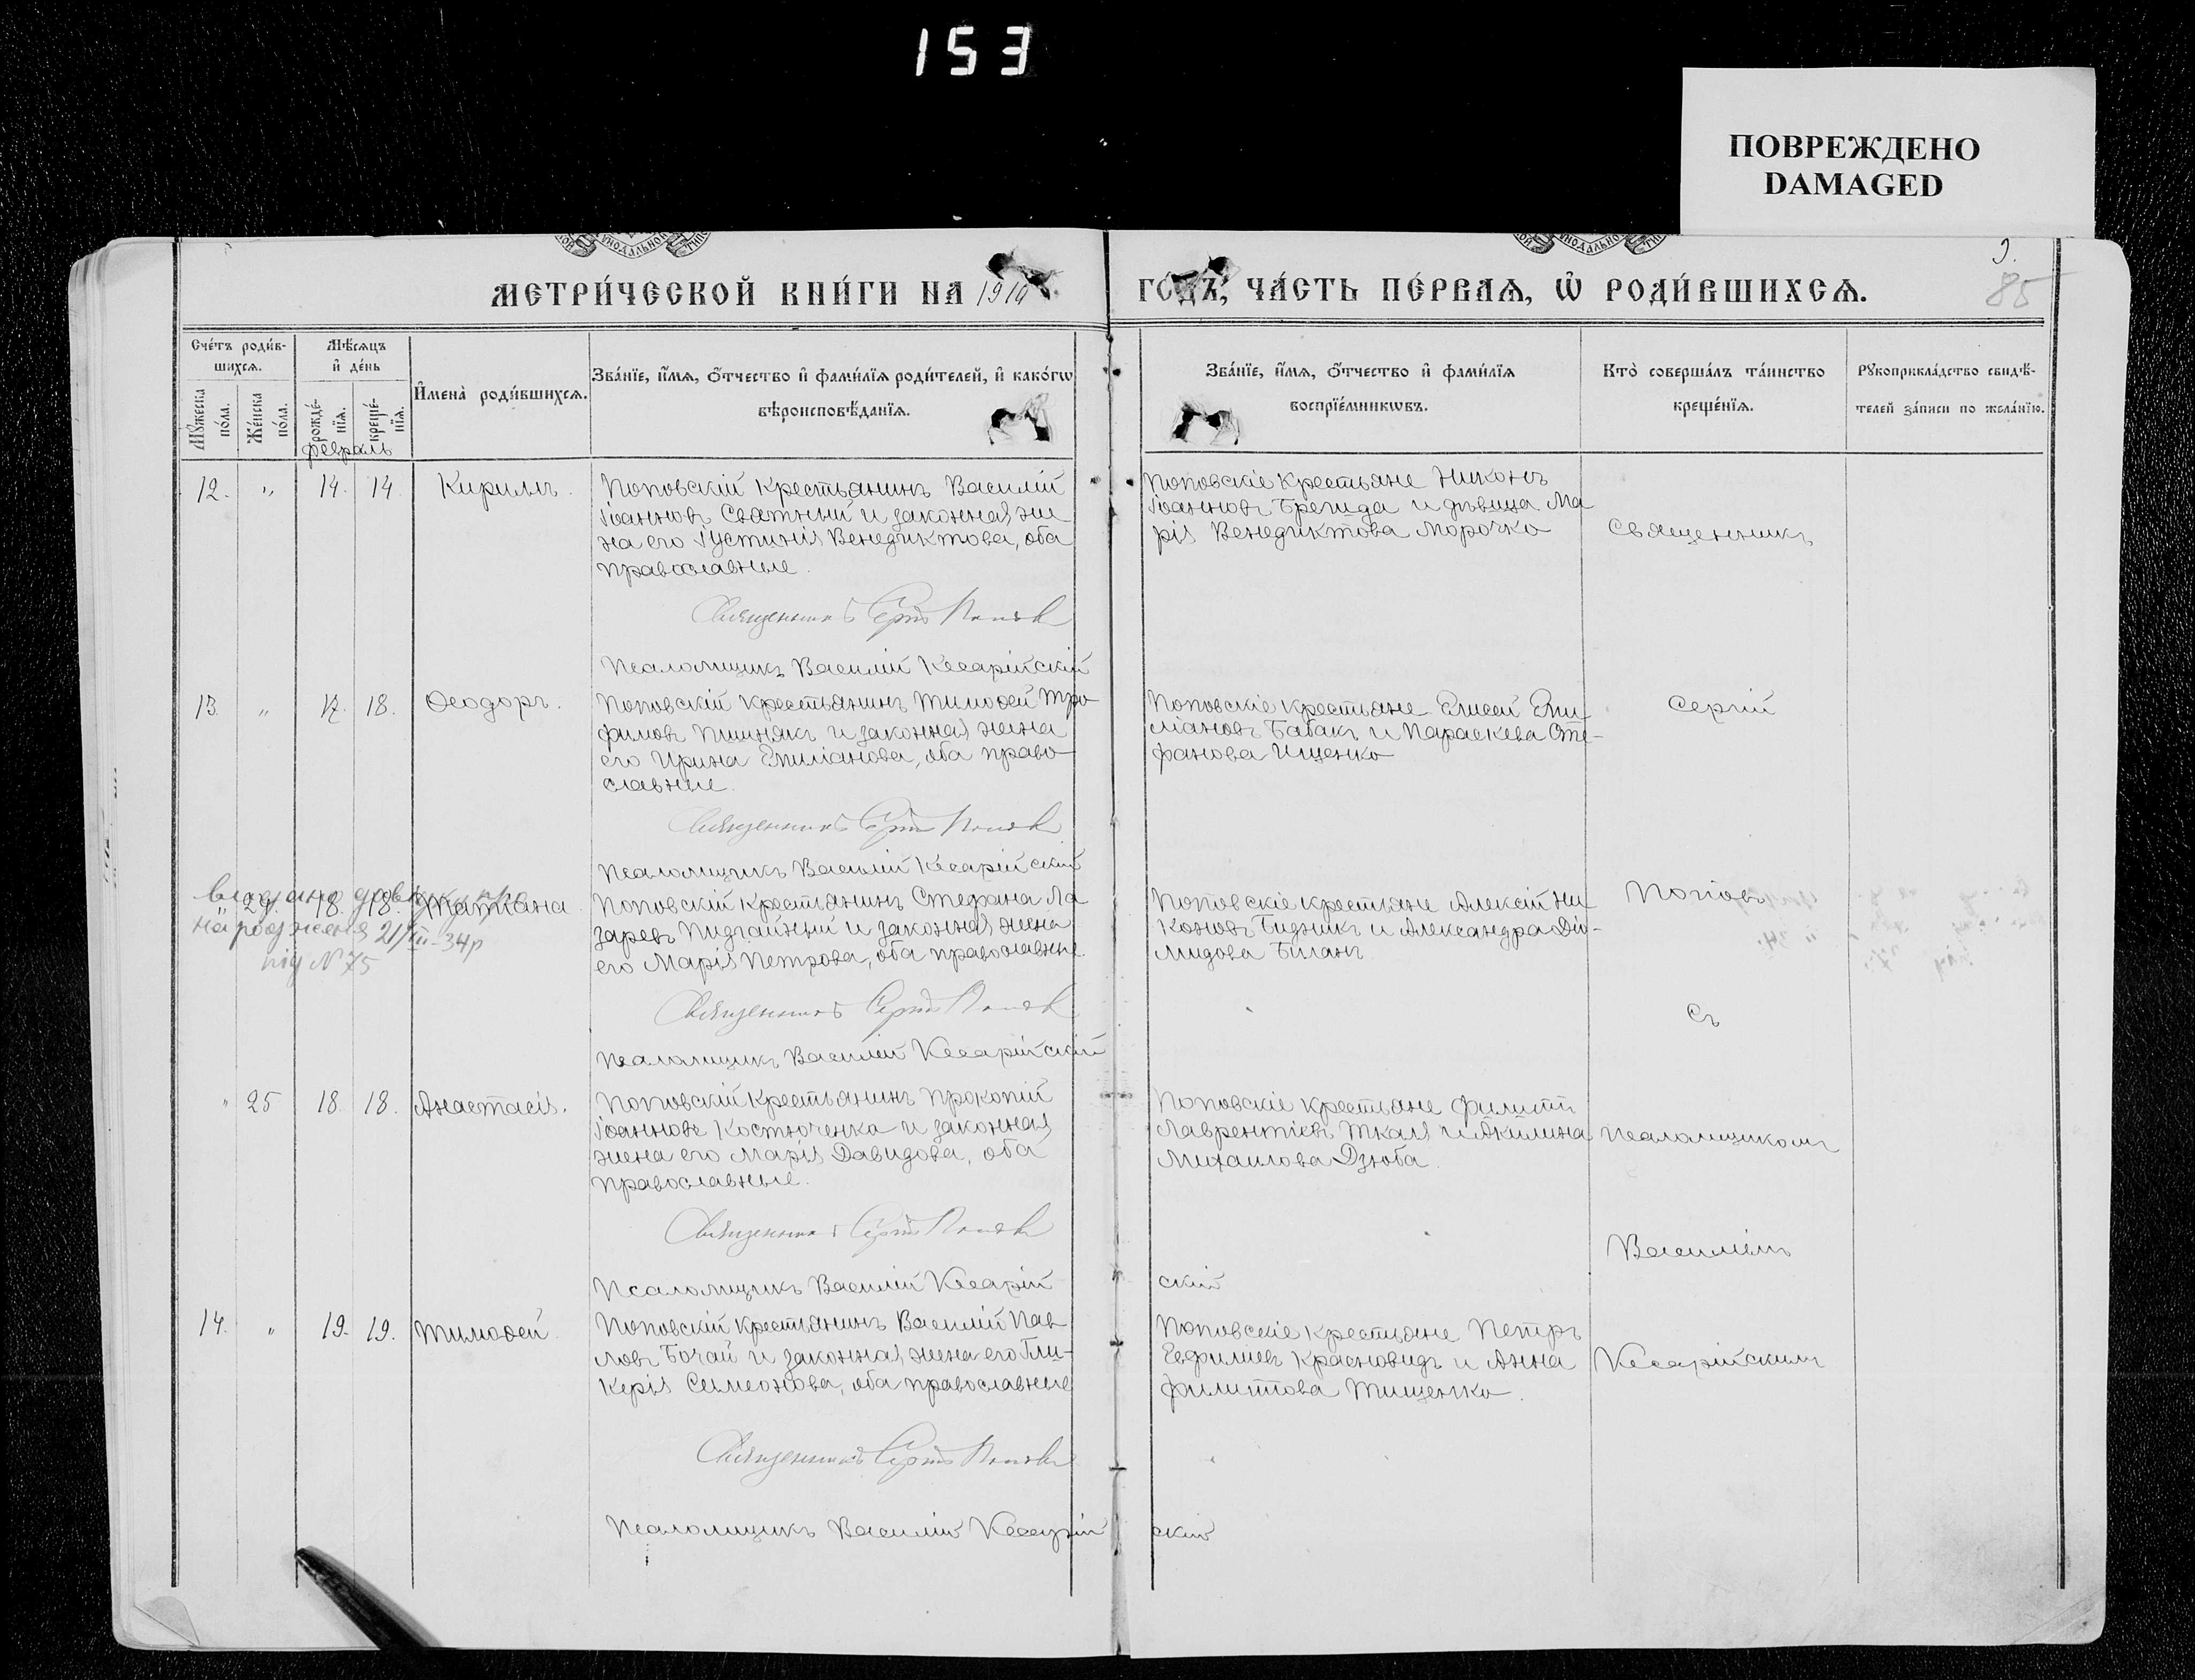 153
ПОВРЕЖДЕНО
DAMAGED
МЕТРИ́ЧЕСКОЙ КНИ́ГИ НА 1910
ГО́ДЪ, ЧА́СТЬ ПЕ́РВАѦ, Ѡ҆ РОДИ́ВШИХСѦ.
85
Сче́тъ роди́в-
шихсѧ.
Мꙋ́жеска
по́ла.
Же́нска
по́ла.
Мѣ́сѧцъ
и҆ де́нь
рожде́-
нїѧ.
креще́-
нїѧ.
Февраль
И҆мена̀ роди́вшихсѧ.
Зва́нїе, и҆́мѧ, ѻ҆́тчество и҆ фами́лїѧ роди́телей, и҆ како́гѡ
вѣроисповѣ́данїѧ.
Зва́нїе, и҆́мѧ, ѻ҆́тчество и҆ фами́лїѧ
воспрїе́мникѡвъ.
Кто̀ соверша́лъ та́инство
креще́нїѧ.
Рꙋкоприкла́дство свидѣ́-
телей за́писи по жела́нїю.
12. " 14. 14. Кириллъ.
Поповскій крестьянинъ Василій
Іоанновъ Сватный и законная же
на его Іустинія Венедиктова, оба
православные.
Священникъ Сергій Поповъ
Псаломщикъ Василій Кесарійскій
Поповскіе крестьяне Никонъ
Іоанновъ Брегида и дѣвица Ма
рія Венедиктова Морочко
Священникъ
13. " 17. 18. Ѳеодоръ.
Поповскій крестьянинъ Тимоѳей Тро
фимовъ Пшнякъ и законная жена
его Ирина Емиліанова, оба право-
славные.
Священникъ Сергій Поповъ
Псаломщикъ Василій Кесарійскій
Поповскіе крестьяне Елисей Еми-
ліановъ Бабакъ и Параскева Сте-
фанова Ищенко
Сергій
24. 18. 18. Татіана
видано довідку про
народження 21/III-34р
під № 75
Поповскій крестьянинъ Стефана Ла
заревъ Пидгайный и законная жена
его Марія Петрова, оба православные.
Священникъ Сергій Поповъ
Псаломщикъ Василій Кесарійскій
Поповскіе крестьяне Алексій Ни-
коновъ Бидникъ и Александра Діо-
мидова Биланъ
Поповъ
съ
" 25 18. 18. Анастасія.
Поповскій крестьянинъ Прокопій
Іоанновъ Костюченко и законная
жена его Марія Давидова, оба
православные.
Священникъ Сергій Поповъ
Псаломщикъ Василій Кесарій
скій
Поповскіе крестьяне Филиппъ
Лаврентіевъ Ткаля и Акилина
Михаилова Дзюба.
псаломщикомъ
Василіемъ
14. " 19. 19. Тимоѳей
Поповскій крестьянинъ Василій Пав
ловъ Бочай и законная жена его Гли-
керія Симеонова, оба православные
Священникъ Сергій Поповъ
Псаломщикъ Василій Кесарій
скій
Поповскіе крестьяне Петръ
Евфиміевъ Красновидъ и Анна
Филиппова Тищенко.
Кесарійскимъ